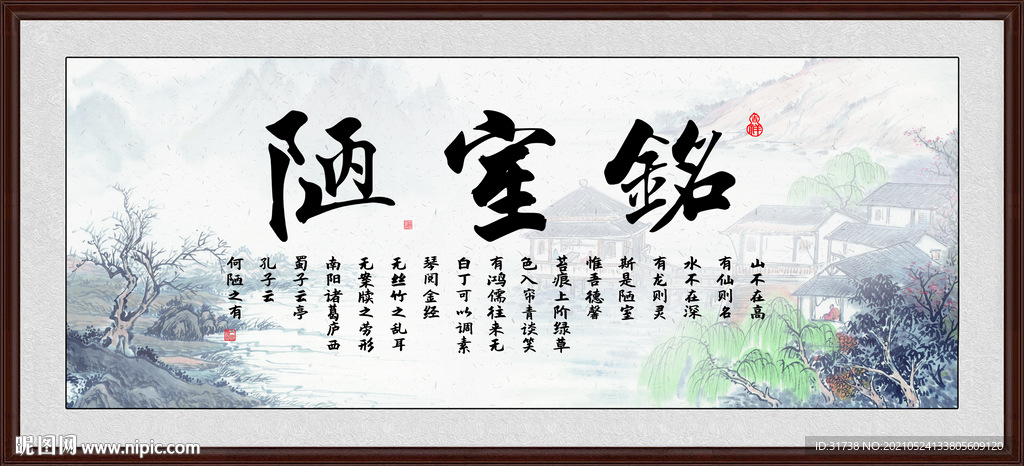 陋室銘
山不在高
有仙则名
水不在深
有龙则灵
斯是陋室
惟吾德馨
苔痕上阶绿草
色入帘青谈笑
有鸿儒往来无
白丁可以调素
琴阅金经
无丝竹之乱耳
无案牍之劳形
南阳诸葛庐西
蜀子云亭
孔子云
何陋之有
昵图网 www.nipic.com
ID:31738 NO:20210524133805609120